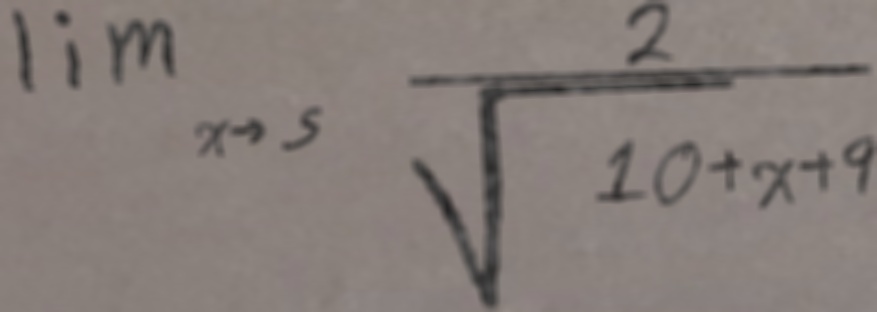 lim x→5 2/√(10+x+9)